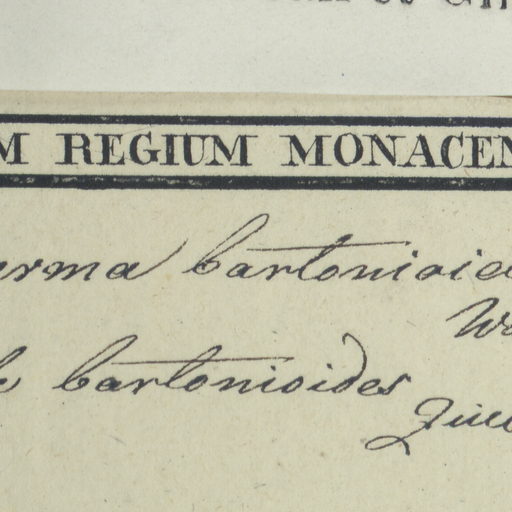 M REGIUM MONACEN
erma bartonioid
bartonioides